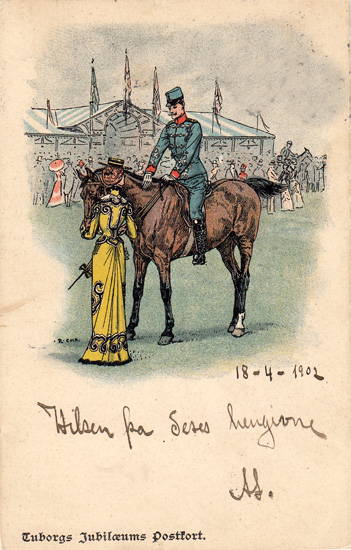 R. CHR.
18-4-1902
Hilsen fra Deres hengivne
AS.
Tuborgs Jubilæums Postkort.